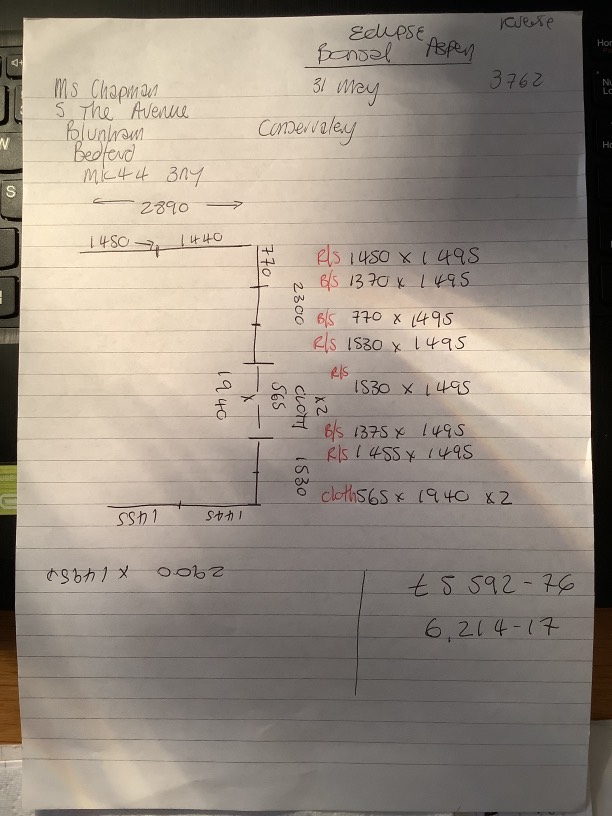 Eclipse reverse
Bansal Aspen
31 May 3762
Ms Chapman
5 The Avenue
Blunham
Bedford
MK44 3NY
Conservatory
2890
1450 1440
770
2300
1940 x
565
cloth
x2
1530
1455 1445
R/S 1450 x 1495
B/S 1370 x 1495
B/S 770 x 1495
R/S 1530 x 1495
R/S
1530 x 1495
B/S 1375 x 1495
R/S 1455 x 1495
cloth 565 x 1940 x2
2900 x 1495
£5592-76
6,214-17